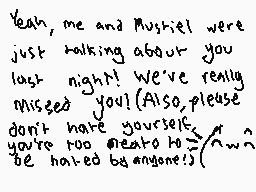 Yeah, me and Mustiel were
just talking about you
last night! We've really
missed you! (Also, please
don't hate yourself,
you're too neato to
be hated by anyone!) (^w^